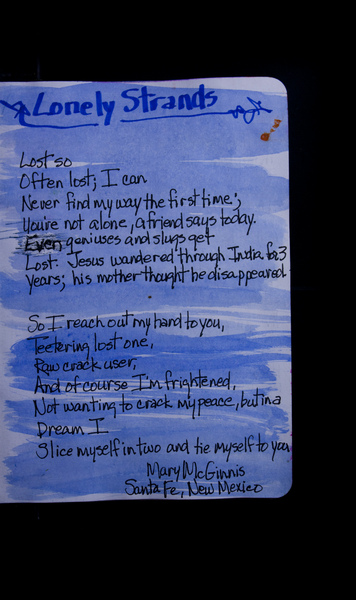 Lonely Strands
Lost so
Often lost; I can
Never find my way the first time.;
You're not alone, a friend says today.
Even geniuses and slugs get
Lost. Jesus wandered through India for 3
years; his mother thought he disappeared.
So I reach out my hand to you,
Teetering lost one,
Raw crack user,
And of course I'm frightened,
Not wanting to crack my peace, but in a
Dream I
Slice myself in two and tie myself to you
Mary McGinnis
Santa Fe, New Mexico